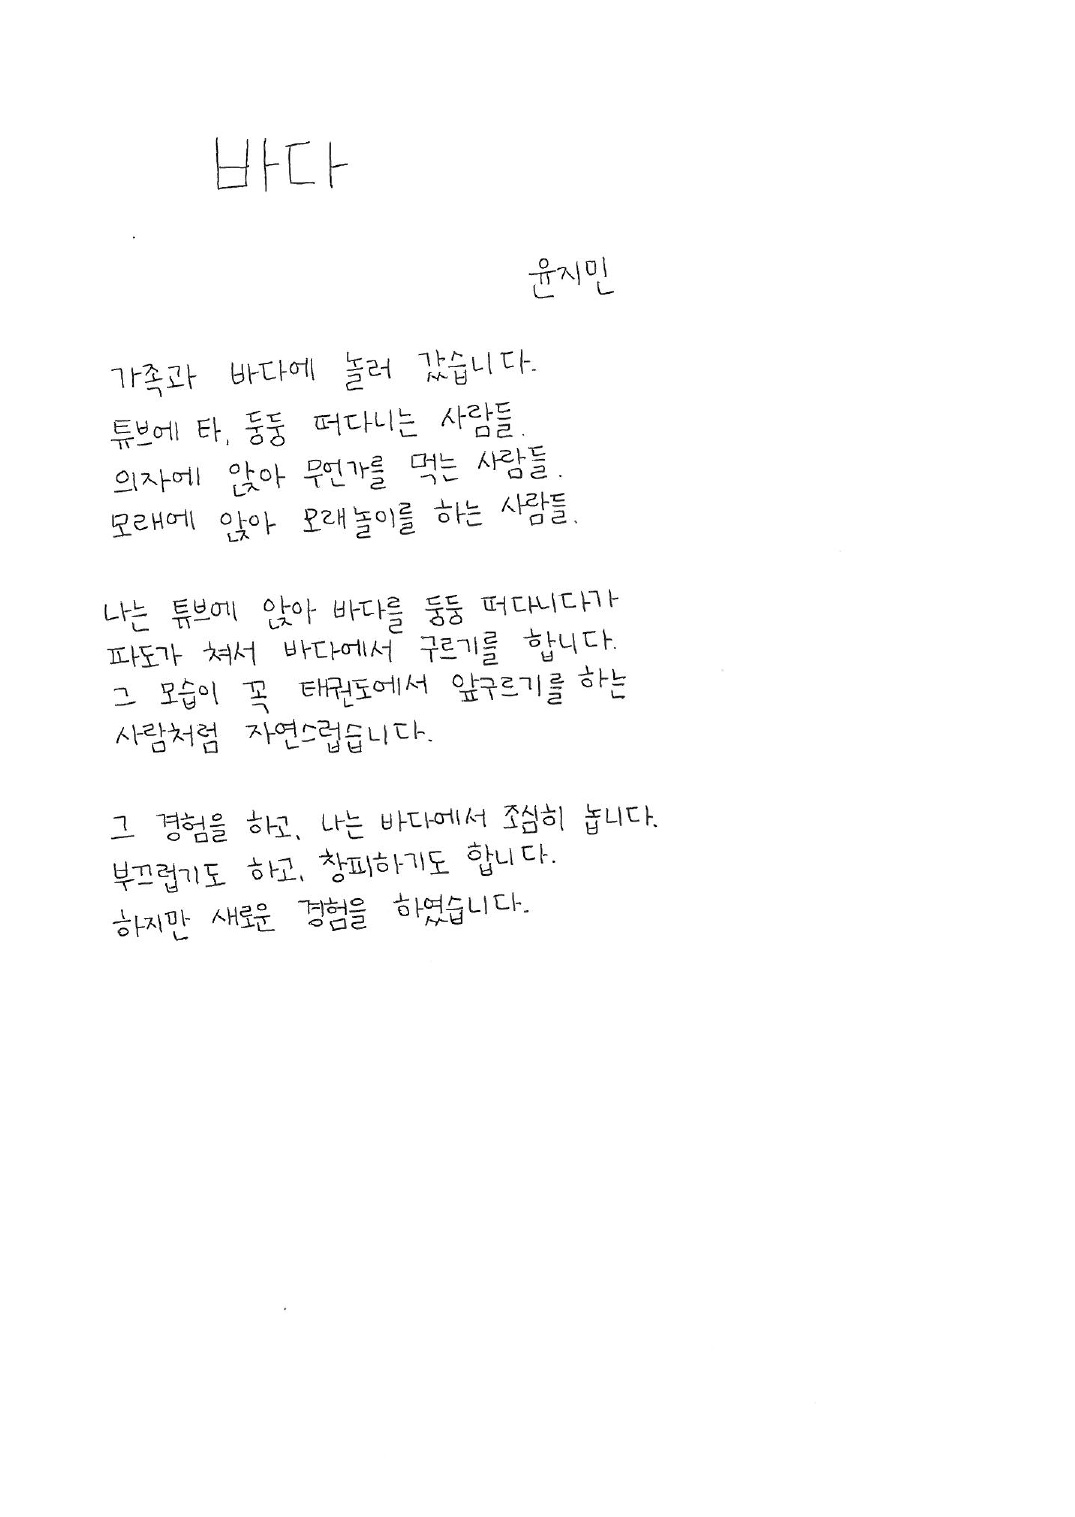 바다
윤지민
가족과 바다에 놀러 갔습니다.
튜브에 타, 둥둥 떠다니는 사람들.
의자에 앉아 무언가를 먹는 사람들.
모래에 앉아 모래놀이를 하는 사람들.
나는 튜브에 앉아 바다를 둥둥 떠다니다가
파도가 쳐서 바다에서 구르기를 합니다.
그 모습이 꼭 태권도에서 앞구르기를 하는
사람처럼 자연스럽습니다.
그 경험을 하고, 나는 바다에서 조심히 놉니다.
부끄럽기도 하고, 창피하기도 합니다.
하지만 새로운 경험을 하였습니다.